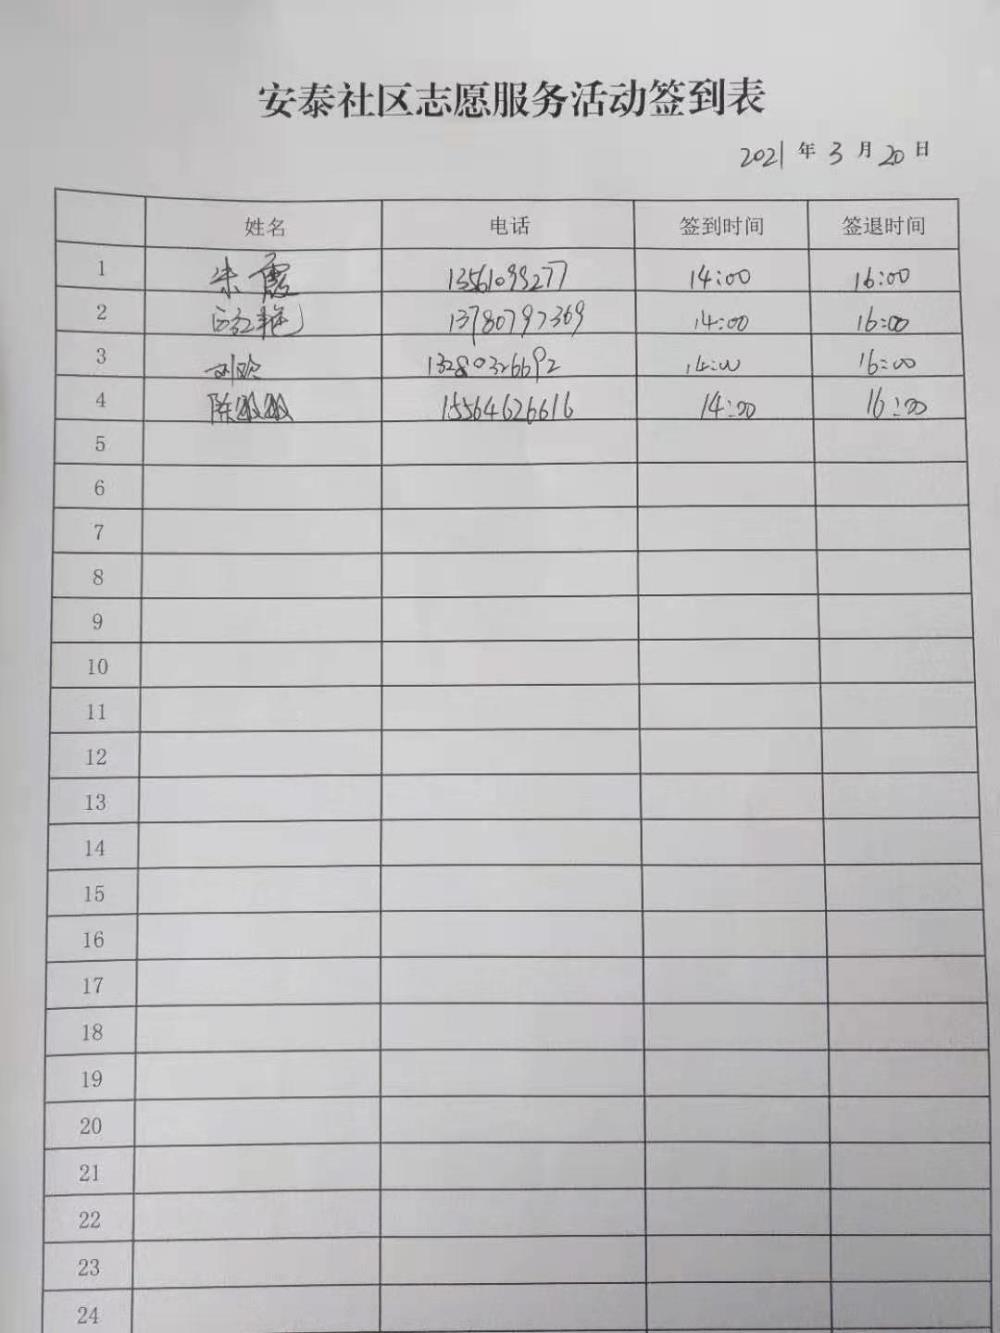 安泰社区志愿服务活动签到表
2021 年 3 月 20 日
姓名 电话 签到时间 签退时间
1 朱霞 13561099277 14:00 16:00
2 13780797369 14:00 16:00
3 13280326692 14:00 16:00
4 陈敏敏 15564626616 14:00 16:00
5
6
7
8
9
10
11
12
13
14
15
16
17
18
19
20
21
22
23
24